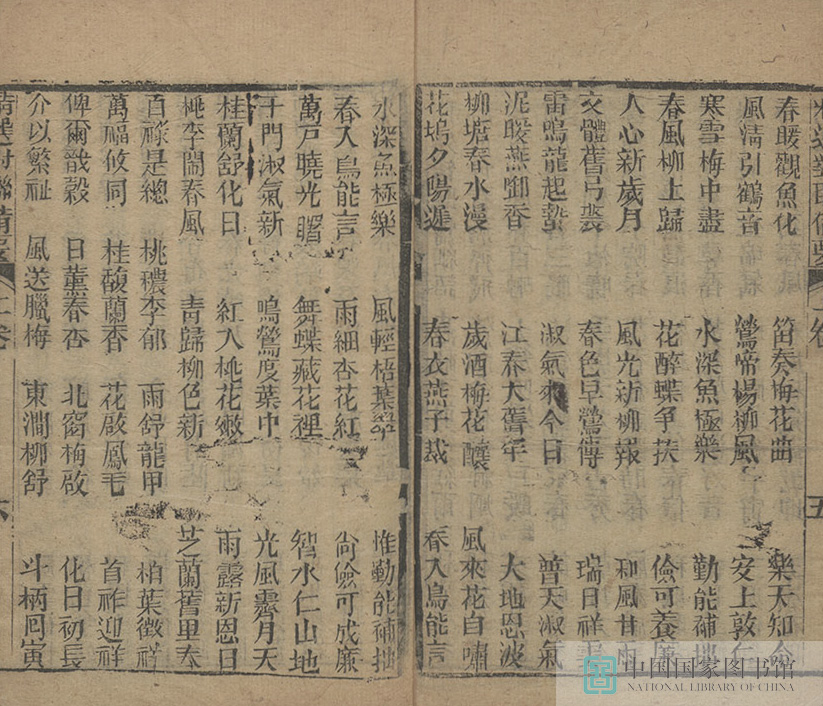 五
春暖觀魚化 笛奏梅花曲 樂天知命
風清引鶴音 鶯啼楊柳風 安上敦仁
寒雪梅中盡 水深魚極樂 勤能補拙
春風柳上歸 花醉蝶爭扶 儉可養廉
人心新歲月 風光新柳報 和風甘雨
交體舊弓裘 春色早鶯傳 瑞日祥
雷鳴龍起蟄 淑氣來今日 普天淑氣
泥暖燕啣香 江春大舊年 大地恩波
柳塘春水漫 歲酒梅花釀 風來花自嘯
花塢夕陽遲 春衣燕子裁 春入鳥能言
水深魚極樂 風輕梧葉 惟勤能補拙
春入鳥能言 雨細杏花紅 尚儉可成廉
萬戶曉光曙 舞蝶藏花裡 智水仁山地
千門淑氣新 鳴鶯度葉中 光風霽月天
桂蘭舒化日 紅入桃花嫩 雨露新恩日
桃李鬧春風 青歸柳色新 芝蘭舊里春
百祿是總 桃穠李郁 雨舒龍甲 柏葉徵祥
萬福攸同 桂馥蘭香 花啟鳳毛 首祚迎祥
俾爾戩穀 日薰春杏 北窗梅啟 化日初長
介以繁祉 風送臘梅 東澗柳舒 斗柄回寅
六
中国国家图书馆
NATIONAL LIBRARY OF CHINA